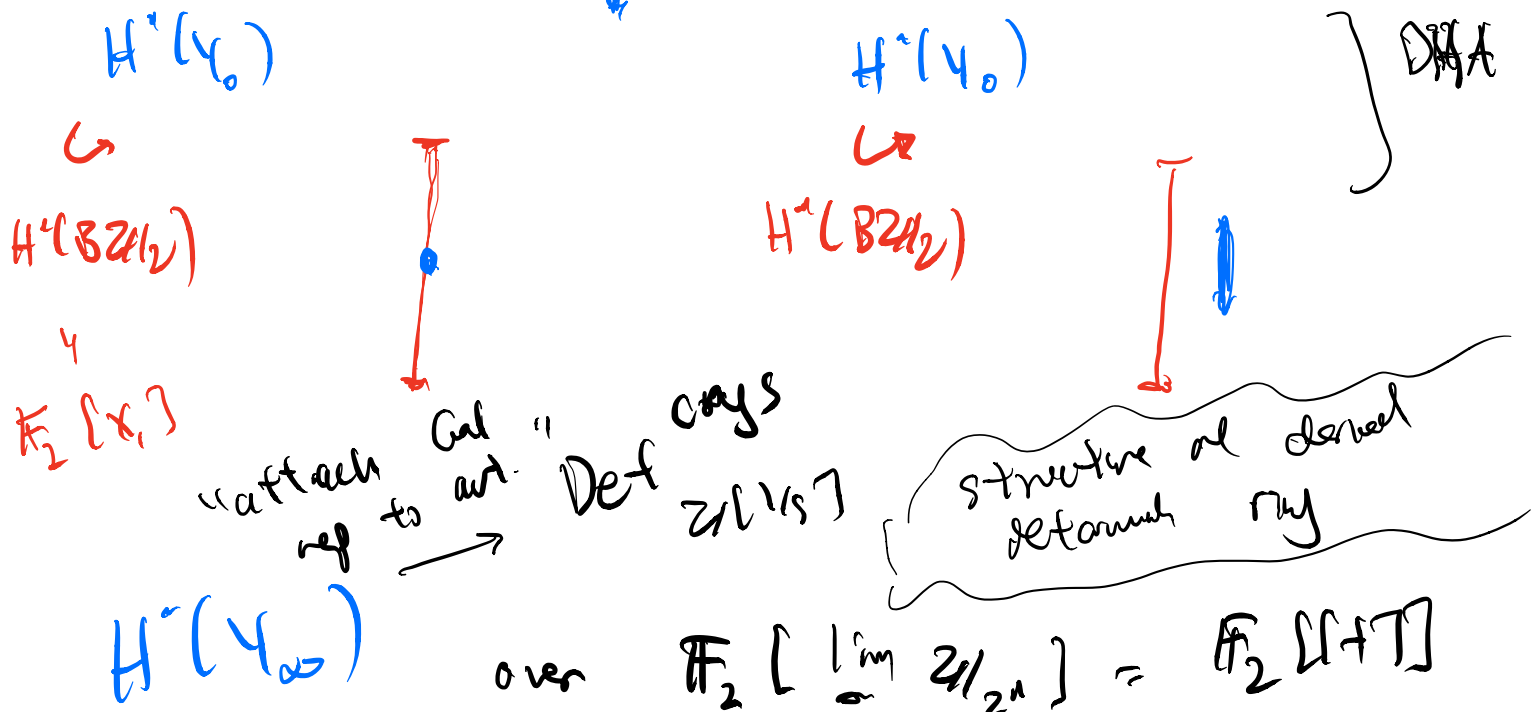 H*(Y₀)
H*(Y₀)
DHA
H*(BZ/2)
H*(BZ/2)
F₂[x₁]
"attach Gal rep to aut."
Def crys
Z[1/S]
structure of derived
deformation ring
H*(Y∞) over F₂[lim Z/2ⁿ] = F₂[[t]]